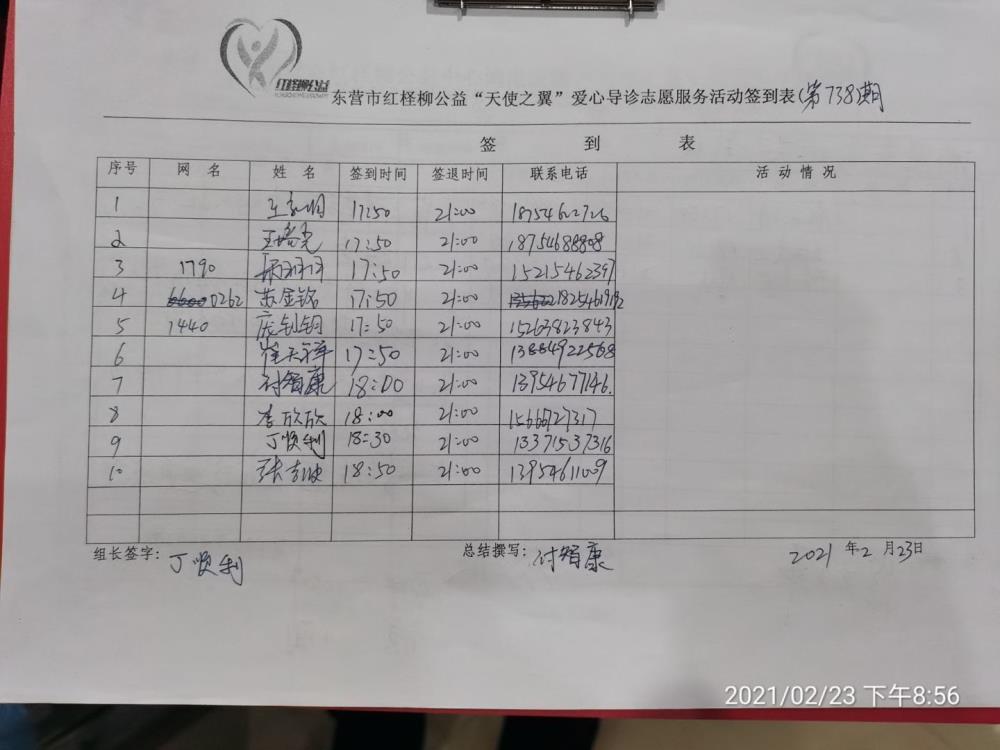 红柽柳公益
东营市红柽柳公益“天使之翼”爱心导诊志愿服务活动签到表(第738)期
签 到 表
序号 网 名 姓 名 签到时间 签退时间 联系电话 活动情况
1 17:50 21:00
2 17:50 21:00 18754688808
3 1790 17:50 21:00 15215462397
4 0262 苏金铭 17:50 21:00 18254619192
5 1440 庞钊钥 17:50 21:00 15263823843
6 崔天祥 17:50 21:00 13884922568
7 付智康 18:00 21:00 13954677146.
8 李欣欣 18:00 21:00 15666727317
9 丁顺利 18:30 21:00 13371537316
10 18:50 21:00 13954611009
组长签字: 丁顺利 总结撰写: 付智康 2021 年 2 月 23 日
2021/02/23 下午8:56